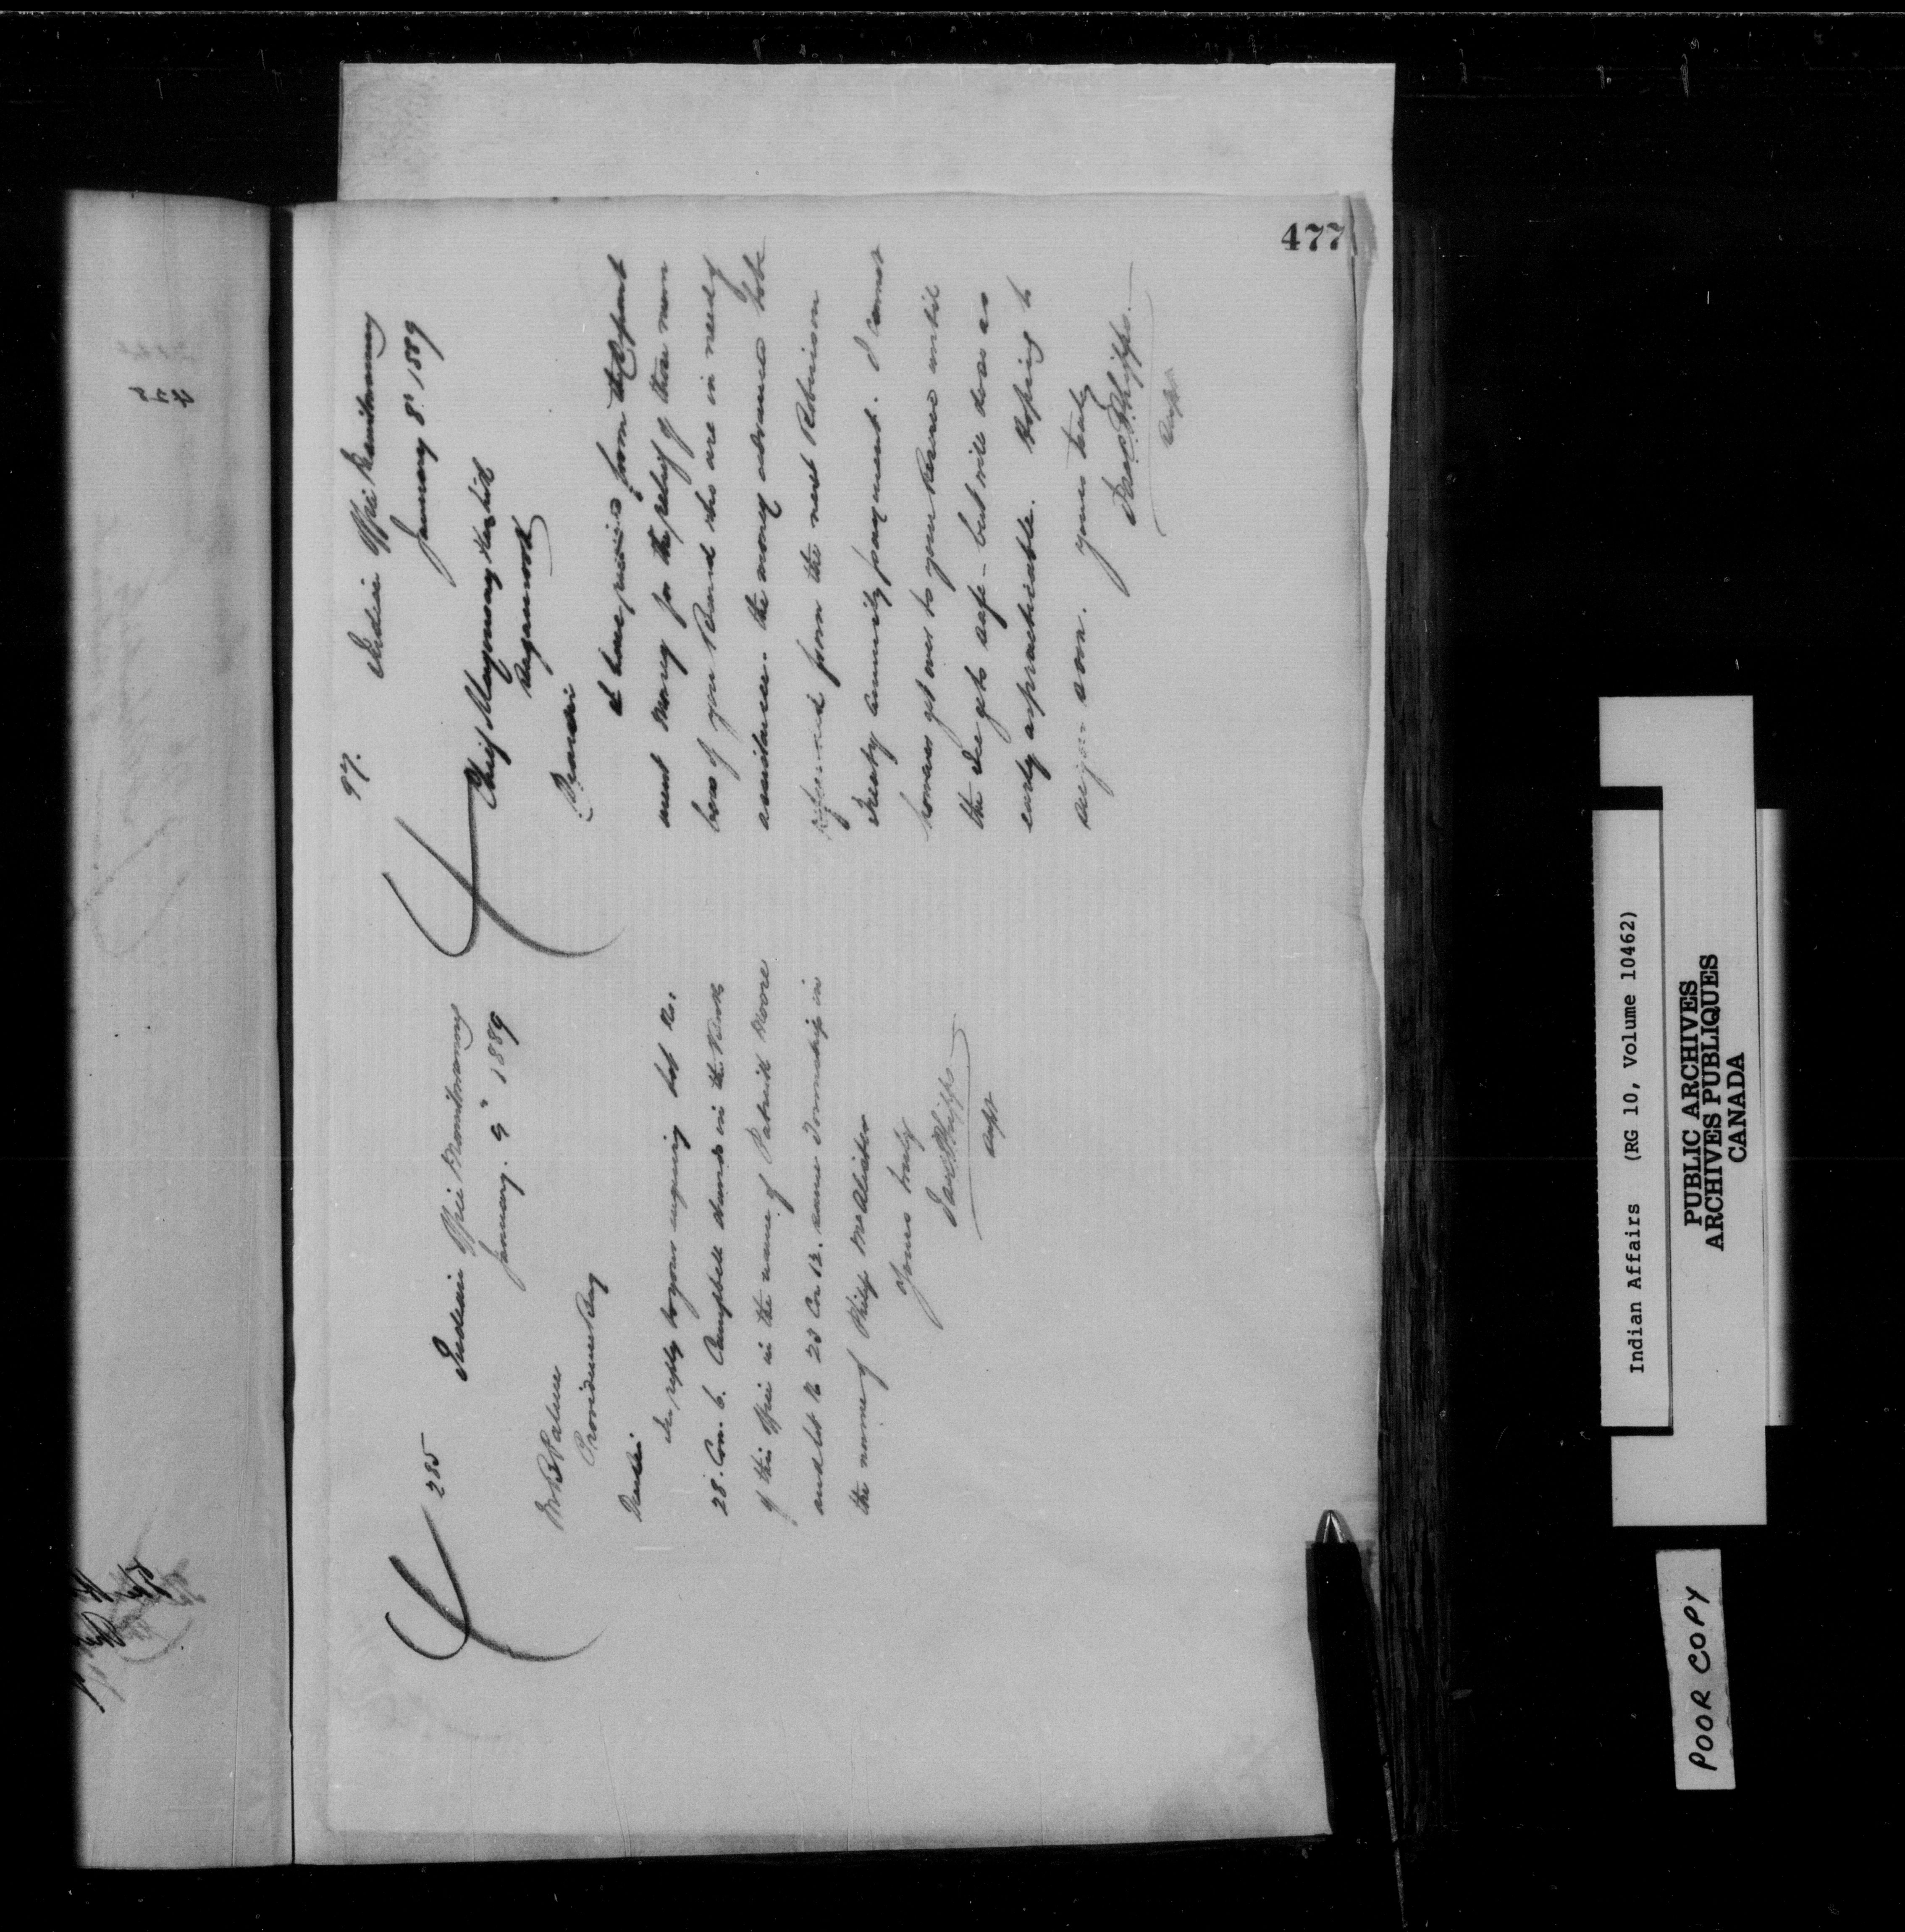 477
285
Indian Office Manitowaning
January 9" 1889
Mr B Palmer
Providence Bay
Dear Sir
In reply to your inquiry Lot No.
28. Con. 6. Campbell stands in the Books
of this Office in the name of Patrick Moore
and lot No 23 Con 12. same Township in
the name of Philip McAlister
Yours truly
Jas C Phipps
Supt
97.
Indian Office Manitowaning
January 8" 1889
Chief
Dear Sir
I have received from the Depart
ment money for the relief of those mem
bers of your Band who are in need of
assistance. the money advanced to be
refunded from the next Robinson
Treaty annuity payment. I cannot
however get over to your Reserve until
the Ice gets safe - but will do so as
early as practicable. Hoping to
see you soon.
yours truly
Jas C Phipps.
Supt
Indian Affairs (RG 10, Volume 10462)
PUBLIC ARCHIVES
ARCHIVES PUBLIQUES
CANADA
POOR COPY